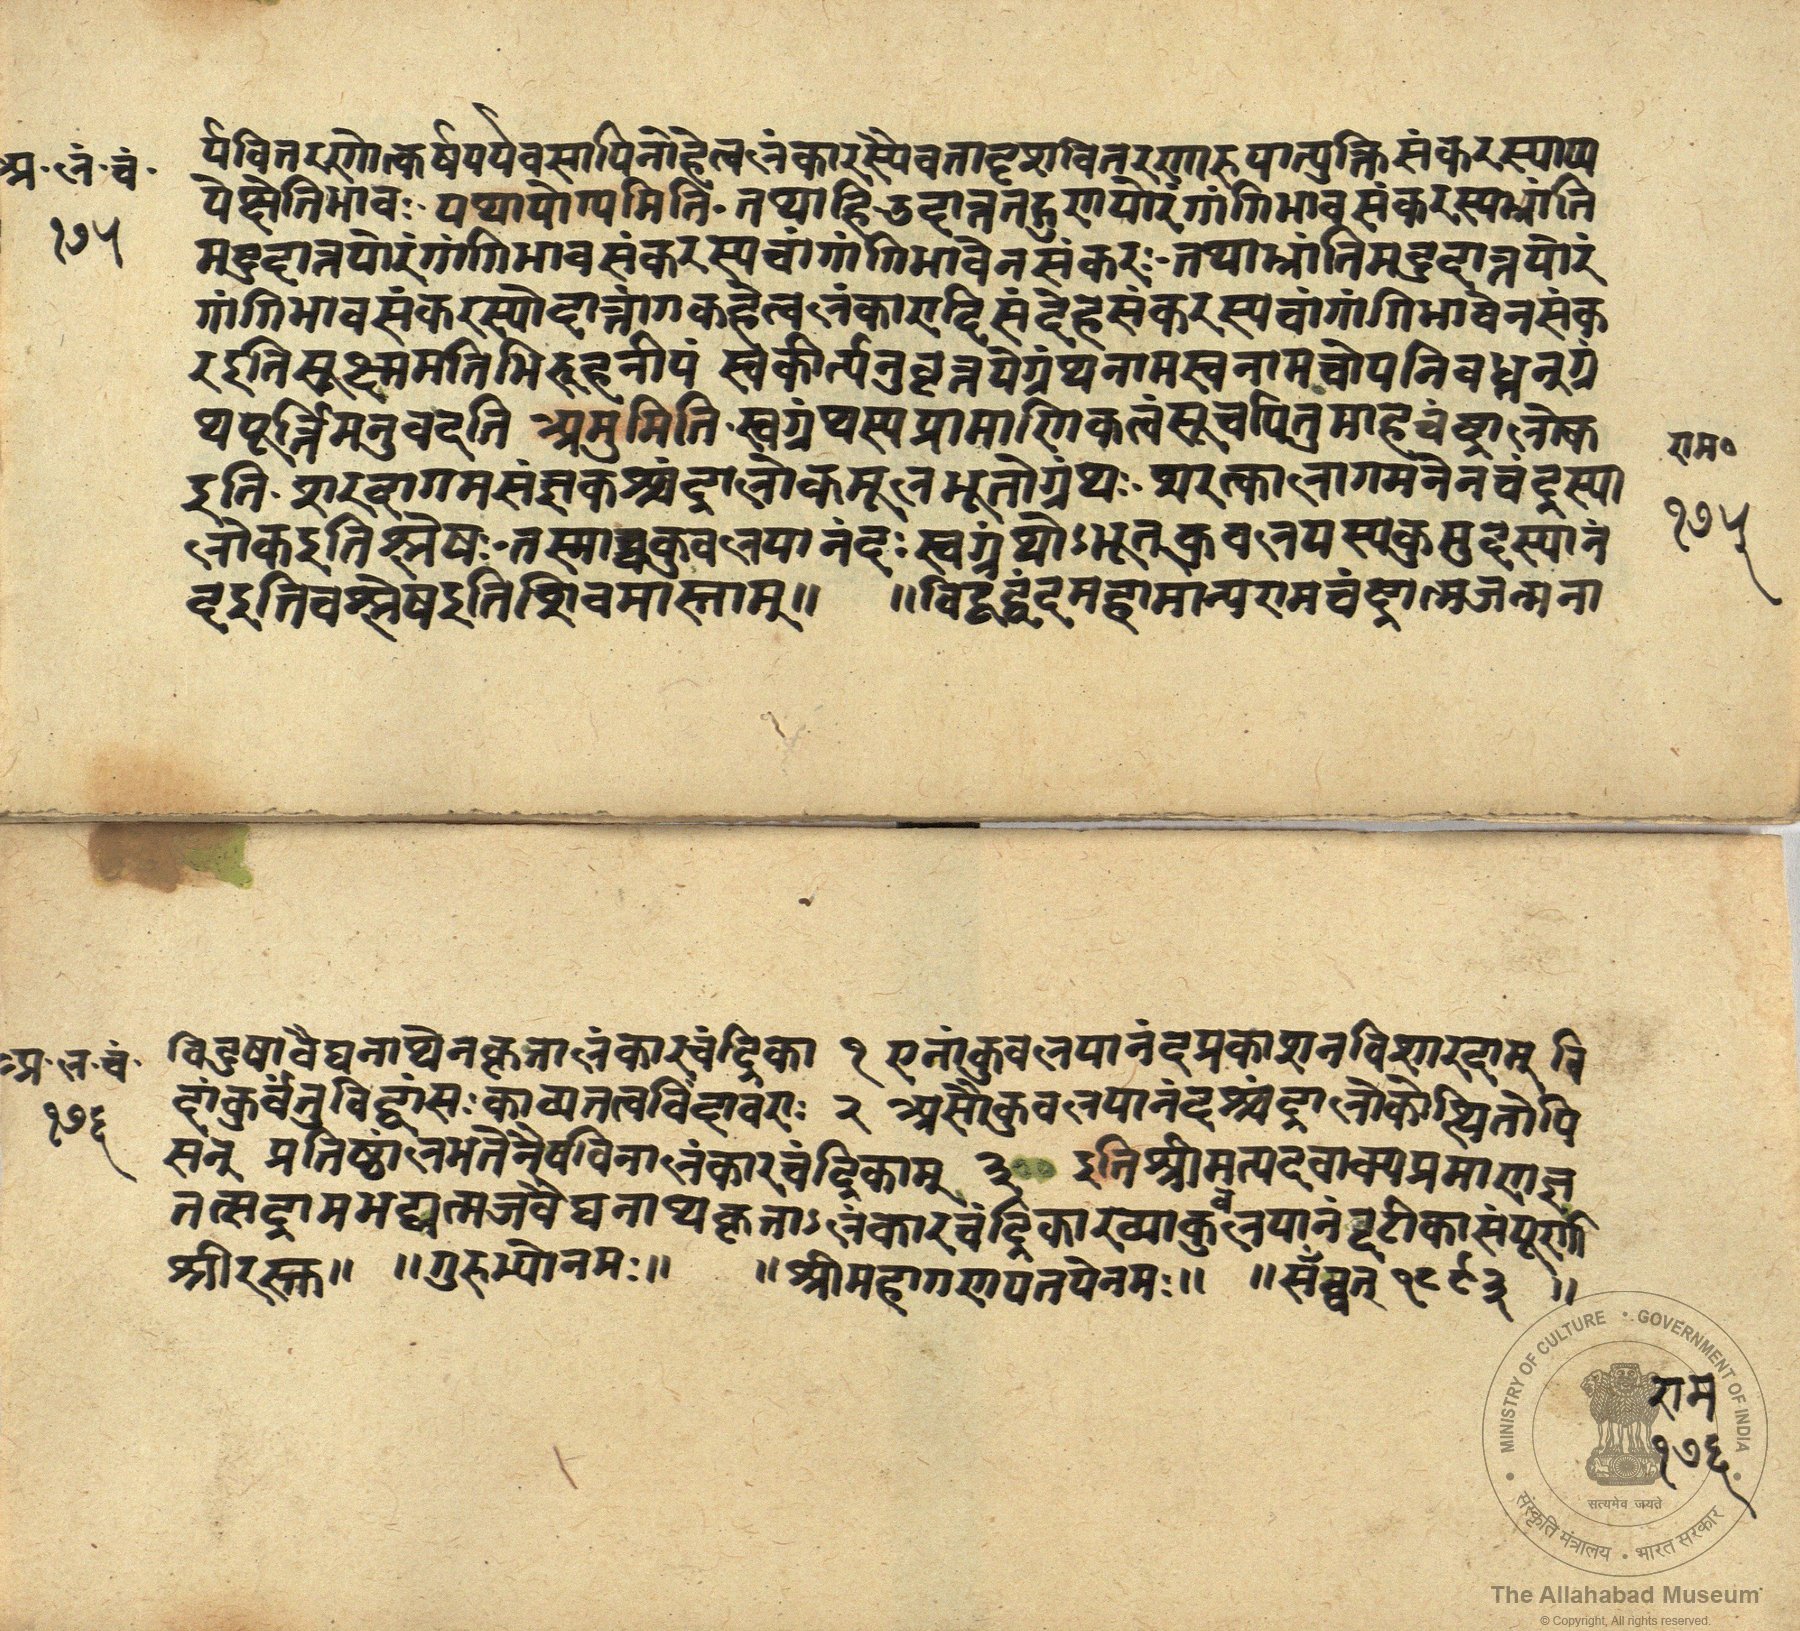 अ. लं. चं.
१७५
र्यवितरणोत्कर्षपर्यवसायिनोहेत्वलंकारस्यैवतादृशवितरणारुपात्युक्तिसंकरस्याप्य
पेक्षेतिभावः यथायोग्यमिति तथाहिउदात्ततद्गुणयोरंगांगिभावसंकरस्यभ्रांति
मदुदात्तयोरंगांगिभावसंकरस्यचांगांगिभावेनसंकरः तथाभ्रांतिमदुदात्तयोरं
गांगिभावसंकरस्योदात्तांगकहेत्वलंकारादिसंदेहसंकरस्यचांगांगिभावेनसंक
रइतिसूक्ष्ममतिभिरूहनीयं स्वकीर्त्यनुवृत्तयेग्रंथनामस्वनामचोपनिबध्नन्ग्रं
थपूर्त्तिमनुवदति अमुमिति स्वग्रंथस्यप्रामाणिकत्वंसूचयितुमाहचंद्रालोक
इति शरदागमसंज्ञकश्चंद्रालोकमूलभूतोग्रंथः शरत्कालागमनेनचंद्रस्या
लोकइतिश्लेषः तस्माच्चकुवलयानंदः स्वग्रंथोऽभूत् कुवलयस्यकुमुदस्यानं
दइतिचश्लेषइतिशिवमास्ताम्॥ ॥विद्वद्वृंदमहामान्यरामचंद्रात्मजन्मना
राम०
१७५
अ. ल. चं.
१७६
विदुषावैद्यनाथेनकृतालंकारचंद्रिका १ एनांकुवलयानंदप्रकाशनविशारदाम् वि
दांकुर्वंतुविद्वांसः काव्यतत्वविदांवराः २ असौकुवलयानंदश्चंद्रालोकोत्थितोपि
सन् प्रतिष्ठांलभतेनैषविनालंकारचंद्रिकाम् ३ इतिश्रीमत्पदवाक्यप्रमाणज्ञ
तत्सद्रामभट्टात्मजवैद्यनाथकृताऽलंकारचंद्रिकारव्याकुवलयानंदटीकासंपूर्णा
श्रीरस्तु॥ ॥गुरुभ्योनमः॥ ॥श्रीमहागणपतयेनमः॥ ॥सँम्वत् १८९३ ॥
राम
१७६
MINISTRY OF CULTURE • GOVERNMENT OF INDIA
सत्यमेव जयते
संस्कृति मंत्रालय • भारत सरकार
The Allahabad Museum
© Copyright, All rights reserved.